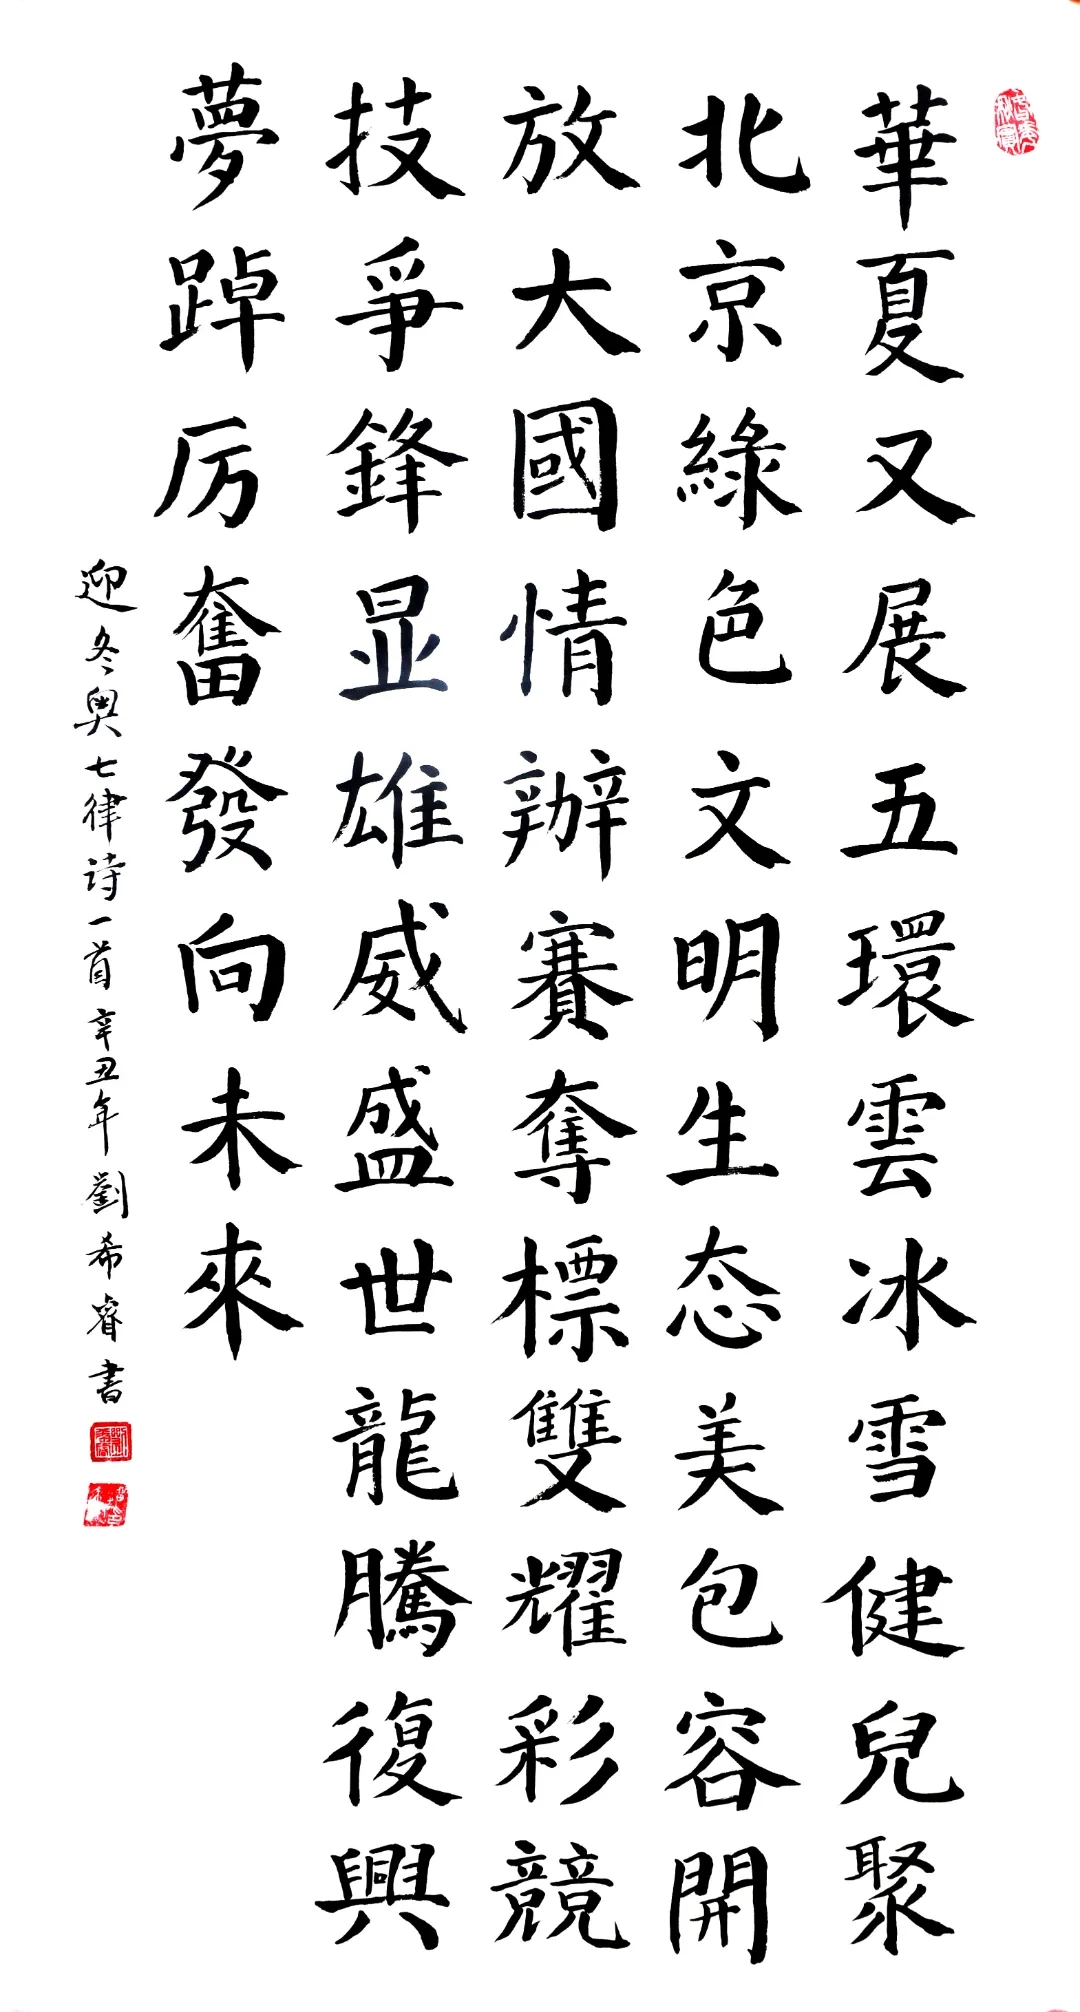 華夏又展五環雲冰雪健兒聚
北京綠色文明生态美包容開
放大國情辦賽奪標雙耀彩競
技爭鋒显雄威盛世龍騰復興
夢踔厉奮發向未來
迎冬奥七律诗一首辛丑年劉希睿書